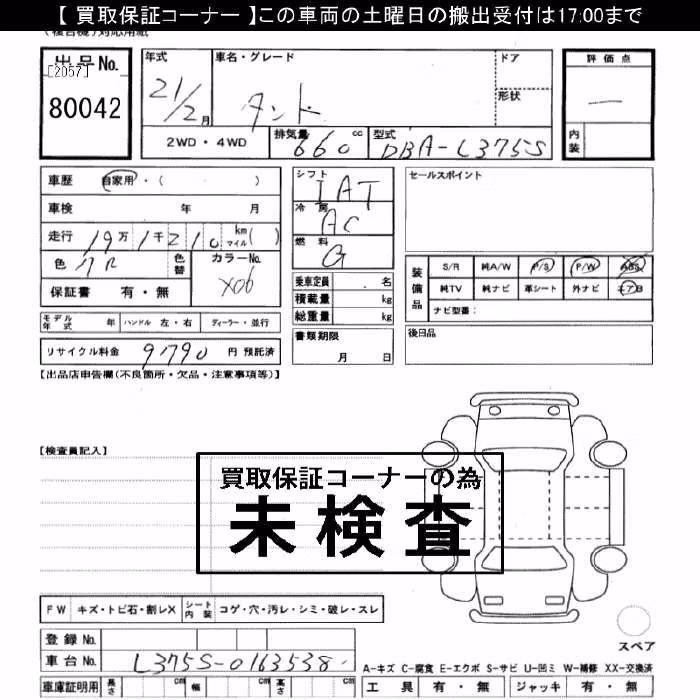 【 買取保証コーナー 】この車両の土曜日の搬出受付は17:00まで
(複合機)対応用紙
出品No.
[2057]
80042
年式
21/2月
車名・グレード
タント
ドア
形状
評価点
―
内装
2WD・4WD
排気量
660
cc
型式
DBA-L375S
車歴 自家用・( )
車検 年 月
走行 19万1千210 km マイル( )
色
色替
カラーNo.
X06
保証書 有・無
シフト
IAT
冷房
AC
燃料
G
乗車定員 名
積載量 kg
総重量 kg
書類期限
月 日
セールスポイント
装備品
S/R 純A/W P/S P/W ABS
純TV 純ナビ 革シート 外ナビ エアB
ナビ型番:
モデル年式 年 ハンドル 左・右 ディーラー・並行
後日品
リサイクル料金 9,790 円 預託済
【出品店申告欄(不良箇所・欠品・注意事項等)】
【検査員記入】
買取保証コーナーの為
未検査
FW キズ・トビ石・割レX シート内装 コゲ・穴・汚レ・シミ・破レ・スレ
スペア
登録 No.
車台 No. L375S-0163538
A-キズ C-腐食 E-エクボ S-サビ U-凹ミ W-補修 XX-交換済
車庫証明用 長さ cm 幅 cm 高さ cm
工具 有・無 ジャッキ 有・無